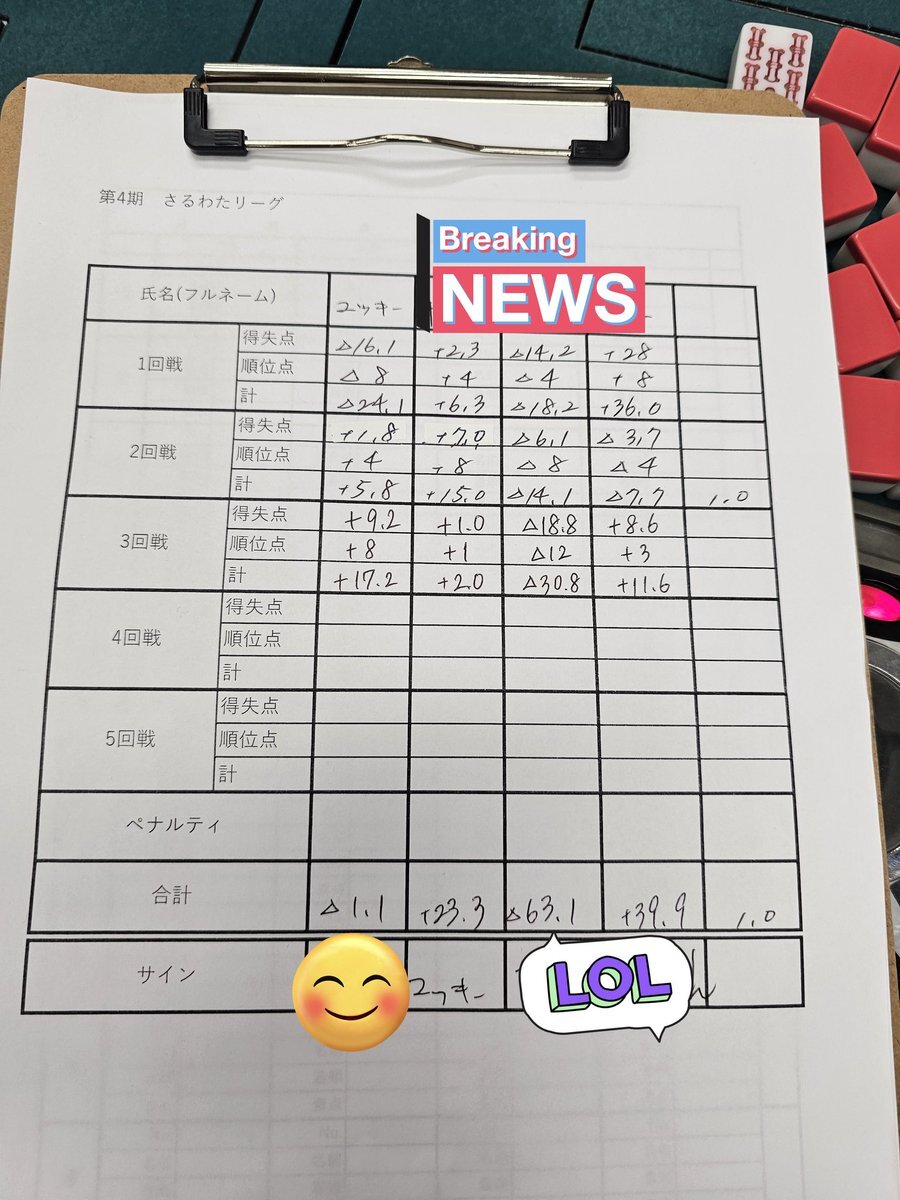 第4期 さるわたリーグ
Breaking
NEWS
氏名(フルネーム) ユッキー
1回戦 得失点 △16.1 +2.3 △14.2 +28
順位点 △8 +4 △4 +8
計 △24.1 +6.3 △18.2 +36.0
2回戦 得失点 +1.8 +7.0 △6.1 △3.7
順位点 +4 +8 △8 △4
計 +5.8 +15.0 △14.1 △7.7 1.0
3回戦 得失点 +9.2 +1.0 △18.8 +8.6
順位点 +8 +1 △12 +3
計 +17.2 +2.0 △30.8 +11.6
4回戦 得失点
順位点
計
5回戦 得失点
順位点
計
ペナルティ
合計 △1.1 +23.3 △63.1 +39.9 1.0
サイン ユッキー
LOL